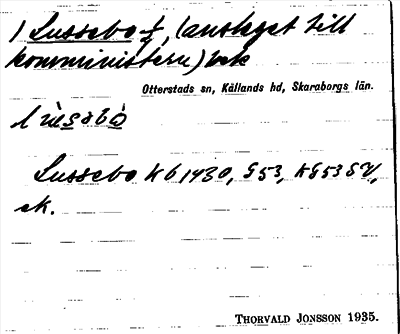 1 Lussebo ½, (anslaget till
komministern) bek
Otterstads sn, Kållands hd, Skaraborgs län.
Lussebo Kb 1930, G 53, KG 53 SV,
ek.
THORVALD JONSSON 1935.